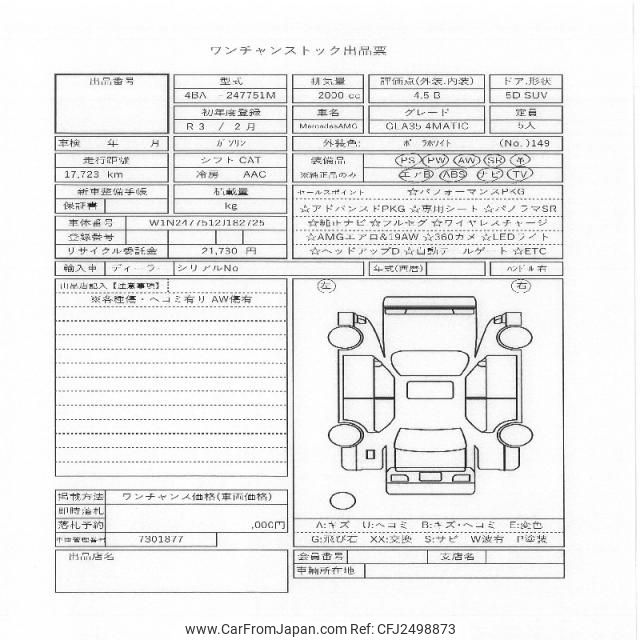 ワンチャンストック出品票
出品番号 型式 排気量 評価点(外装.内装) ドア.形状
4BA - 247751M 2000 cc 4.5 B 5D SUV
初年度登録 車名 グレード 定員
R 3 / 2 月 MercedesAMG GLA35 4MATIC 5人
車検 年 月 ｶﾞｿﾘﾝ 外装色: ﾎﾟﾗﾎﾜｲﾄ (No.)149
走行距離 シフト CAT 装備品 PS PW AW SR 革
17,723 km 冷房 AAC ※純正品のみ エアB ABS ナビ TV
新車整備手帳 積載量 セールスポイント ☆パフォーマンスPKG
保証書 kg ☆アドバンスドPKG ☆専用シート ☆パノラマSR
車体番号 W1N2477512J182725 ☆純正ナビ ☆フルセグ ☆ワイヤレスチャージ
登録番号 ☆AMGエアロ&19AW ☆360カメ ☆LEDライト
リサイクル委託金 21,730 円 ☆ヘッドアップD ☆自動テールゲート ☆ETC
輸入車 ディーラー シリアルNo 年式(西暦) ﾊﾝﾄﾞﾙ 右
出品店記入【注意事項】 左 右
※各種傷・ヘコミ有り AW傷有
掲載方法 ワンチャンス価格(車両価格)
即時落札
落札予約 ,000円 A:キズ U:ヘコミ B:キズ・ヘコミ E:変色
車両管理番号 7301877 G:飛び石 XX:交換 S:サビ W波有 P塗装
出品店名 会員番号 支店名
車輌所在地
www.CarFromJapan.com Ref: CFJ2498873